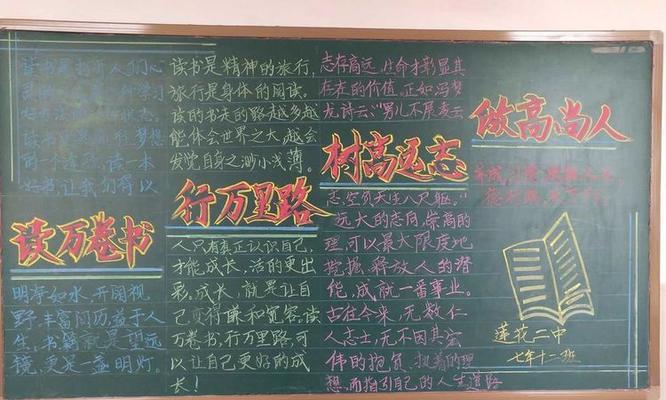 读万卷书
明净如水，开阔视
野，丰富阅历，益于人
生，书籍就是望远
镜，更是一盏明灯。
读书是精神的旅行，
旅行是身体的阅读。
读的书走的路越多越
能体会世界之大，越会
发觉自身之渺小浅薄。
行万里路
人只有真正认识自己，
才能成长，活的更出
彩。成长，就是让自
己变得谦和宽容。读
万卷书，行万里路，可
以让自己更好的成
长！
志存高远，生命才彰显其
存在的价值，正如冯梦
龙诗云："男儿不展凌云
树高远志
志，空负天生八尺躯。"
远大的志向，崇高的
理，可以最大限度地
挖掘，释放人的潜
能，成就一番事业。
古往今来，无数仁
人志士，无不因其宏
伟的抱负，执着的理
想，而指引自己的人生道路
做高尚人
莲花二中
七年十二班